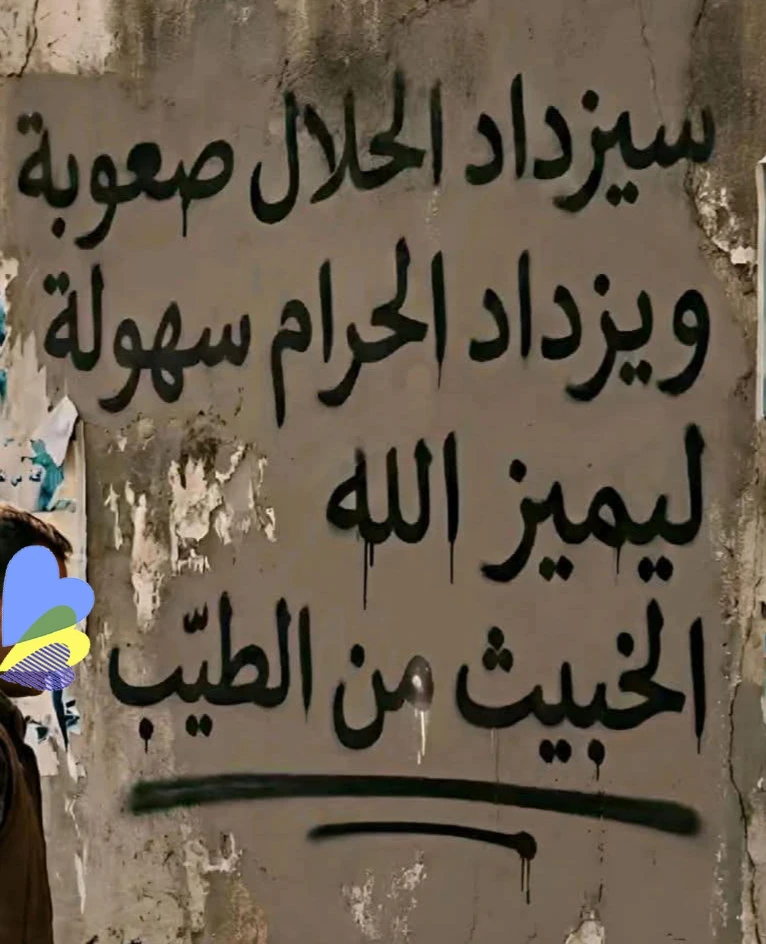 سيزداد الحلال صعوبة
ويزداد الحرام سهولة
ليميز الله
الخبيث من الطيّب